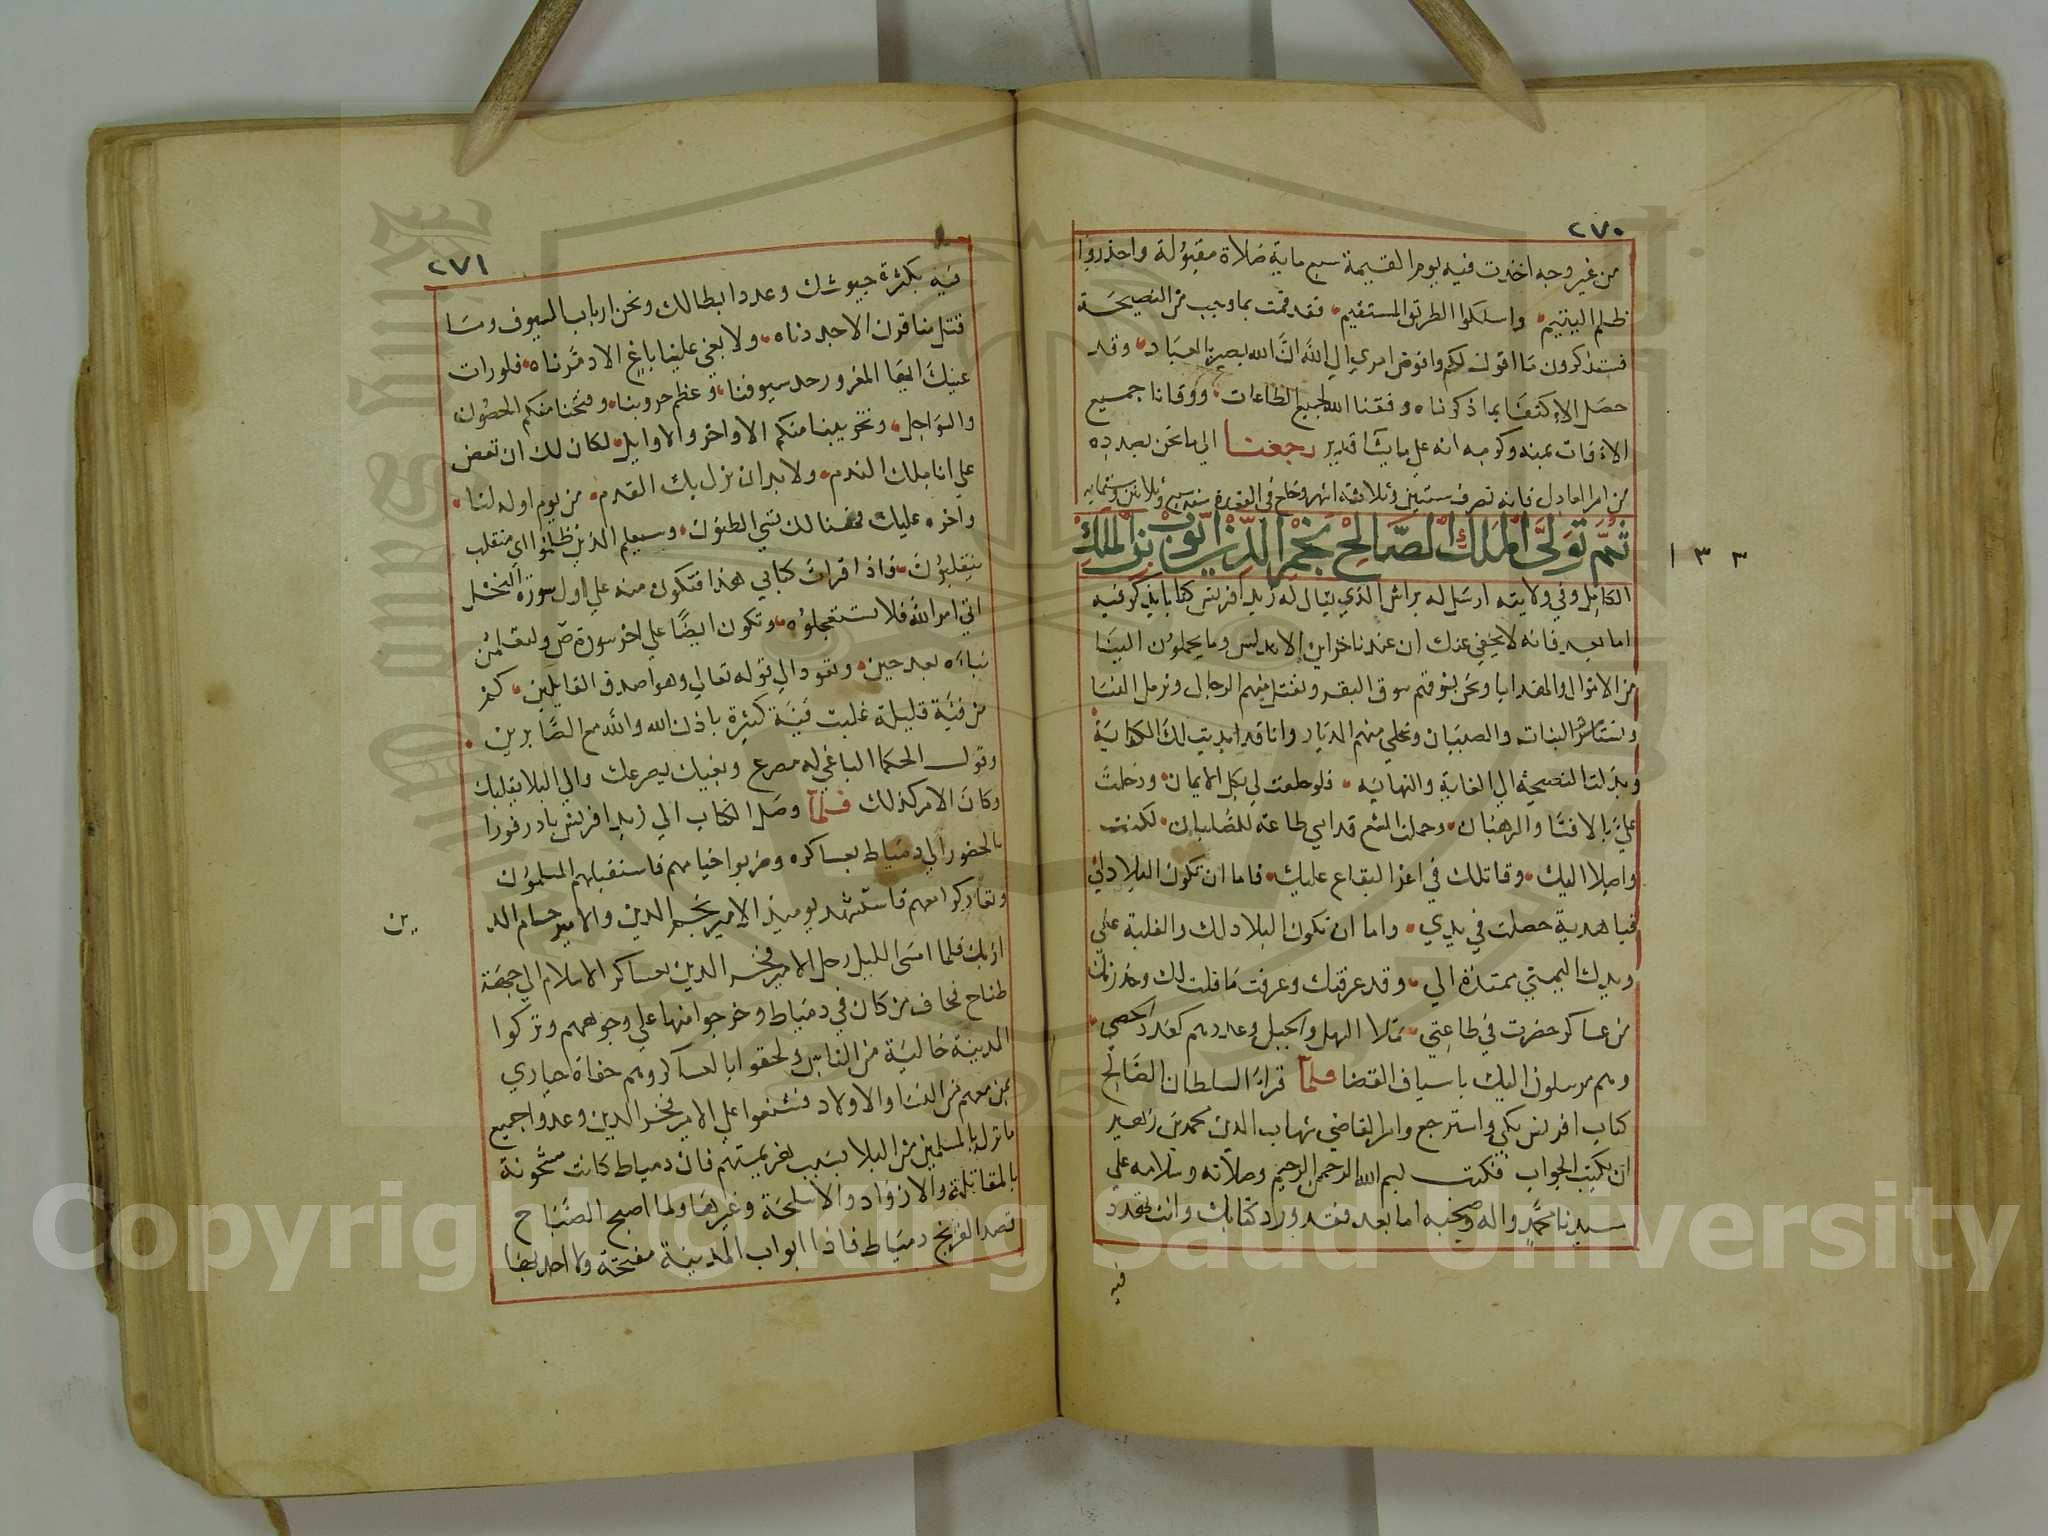 ٢٧٠
من غير وجه اخذت فيه يوم القيمة سبع ماية صلاة مقبولة واحذروا
ظلم اليتيم واسلكوا الطريق المستقيم فقد قمت بما وجب من النصيحة
فستذكرون ما اقول لكم وافوض امري الي الله ان الله بصير العباد وقد
حصل الاكتفا بما ذكرناه وفقنا الله لجميع الطاعات ووقانا جميع
الافات بمنه وكرمه انه علي ما يشا قدير رجعنا الي ما نحن بصدده
من امر العادل فانه تصرف سنتين وثلاثة اشهر وخلع في القعدة سنة سبع وثلاثين وستمايه
ثم تولى الملك الصالح نجم الدين ايوب بن الملك
١٣٣
الكامل وفي ولايته ارسل له براش الذي يقال له زيد افرنس كتابا يذكر فيه
اما بعد فانه لا يخفي عنك ان عندنا خزاين الاندلس وما يحملون الينا
من الاموال والهدايا ونحن نسوقهم سوق البقر ونقتل منهم الرجال ونرمل النسا
ونستاسر البنات والصبيان ونخلي منهم الديار وانا قد ابديت لك الكفاية
وبذلت النصيحة الي الغاية والنهايه فلو حلفت لي بكل الايمان ودخلت
علي بالاقسا والرهبان وحملت الشمع قدامي طاعة للصلبان لكنت
واصلا اليك وقاتلك في اعز البقاع عليك فاما ان تكون البلاد لي
فيا هدية حصلت في يدي واما ان تكون البلاد لك والغلبة علي
ويدك اليمني ممتدة الي وقد عرفتك وعرفت ما قلت لك وحذرتك
من عساكر حضرت في طاعتي تملا السهل والجبل وعددهم كعدد الحصي
وهم مرسلون اليك باسياف القضا فلما قرا السلطان الصالح
كتاب افرنس بكي واسترجع وامر القاضي شهاب الدين محمد بن زهير
ان يكتب الجواب فكتب بسم الله الرحمن الرحيم وصلاته وسلامه علي
سيدنا محمد واله وصحبه اما بعد فقد ورد كتابك وانت تهدد
فيه
٢٧١
فيه بكثرة جيوشك وعدد ابطالك ونحن ارباب السيوف وما
قتل منا قرن الا جددناه ولا بغي علينا باغ الا دمرناه فلو رات
عينك ايها المغرور حد سيوفنا وعظم حروبنا وفتحنا منكم الحصون
والسواحل وتخريبنا منكم الاواخر والاوايل لكان لك ان تعض
علي اناملك الندم ولا بد ان تزل بك القدم من يوم اوله لنا
واخره عليك فهنالك تسي الظنون وسيعلم الذين ظلموا اي منقلب
ينقلبون فاذا قرات كتابي هذا فتكون منه علي اول سورة النحل
اتي امر الله فلا تستعجلوه وتكون ايضا علي اخر سورة ص ولتعلمن
نباه بعد حين ونعود الي قوله تعالي وهو اصدق القايلين كم
من فئة قليلة غلبت فية كثيرة باذن الله والله مع الصابرين
وقول الحكما الباغي له مصرع وبغيك يصرعك والي البلا يقلبك
وكان الامر كذلك فلما وصل الكتاب الي زيد افرنس بادر فورا
بالحضور الي دمياط بعساكره وضربوا خيامهم فاستقبلهم المسلمون
وتعاركوا معهم فاستشهد يوميذ الامير نجم الدين والامير حسام الد
ين
ازبك فلما امسي الليل رحل الامير فخر الدين بعساكر الاسلام الي جهة
طناح فخاف من كان في دمياط وخرجوا منها علي وجوههم وتركوا
المدينة خالية من الناس ولحقوا بالعساكر وهم حفاة حياري
بمن معهم من النسا والاولاد فشنعوا علي الامير فخر الدين وعدوا جميع
ما نزل بالمسلمين من البلا بسبب هزيمتهم فان دمياط كانت مشحونة
بالمقاتلة والازواد والاسلحة وغيرها ولما اصبح الصباح
قصد الفرنج دمياط فاذا ابواب المدينة مفتحة ولا احد بها
Copyright © King Saud University